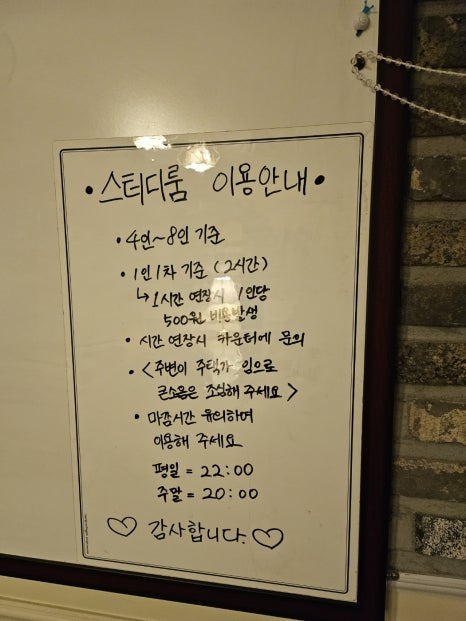 • 스터디룸 이용안내 •
• 4인~8인 기준
• 1인 1차 기준 (2시간)
↳ 1시간 연장시 1인당
500원 비용발생
• 시간 연장시 카운터에 문의
• <주변이 주택가 임으로
큰소음은 조심해 주세요>
• 마감시간 유의하며
이용해 주세요
평일 = 22:00
주말 = 20:00
♡ 감사합니다. ♡